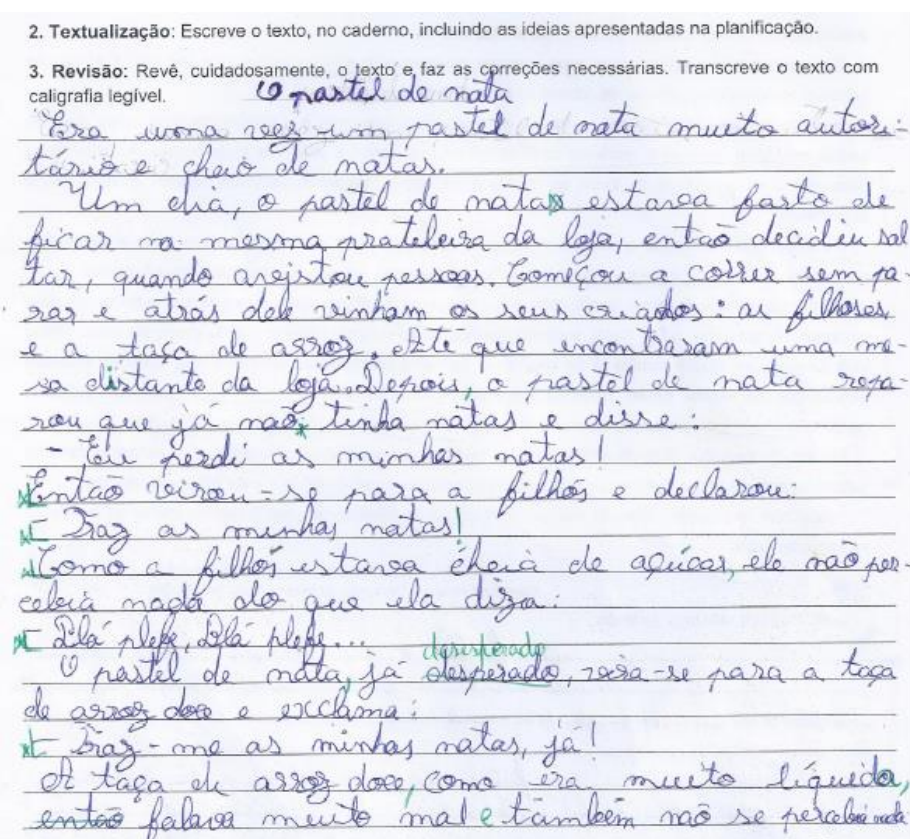 2. Textualização: Escreve o texto, no caderno, incluindo as ideias apresentadas na planificação.
3. Revisão: Revê, cuidadosamente, o texto e faz as correções necessárias. Transcreve o texto com
caligrafia legível.
O pastel de nata
Era uma vez um pastel de nata muito autori-
tário e cheio de natas.
Um dia, o pastel de natas estava farto de
ficar na mesma prateleira da loja, então decidiu sal
tar, quando avistou pessoas. Começou a correr sem pa-
rar e atrás dele vinham os seus criados: as filhoses
e a taça de arroz. Até que encontraram uma me-
sa distante da loja. Depois, o pastel de nata repa-
rou que já não tinha natas e disse:
- Eu perdi as minhas natas!
Então virou-se para a filhós e declarou:
- Traz as minhas natas!
Como a filhós estava cheia de açúcar, ele não per-
cebia nada do que ela dizia:
- Blá plefe, Blá plefe...
desesperado
O pastel de nata, já desperado, vira-se para a taça
de arroz doce e exclama:
- Traz-me as minhas natas, já!
A taça de arroz doce, como era muito líquida,
então falava muito mal e também não se percebia nada